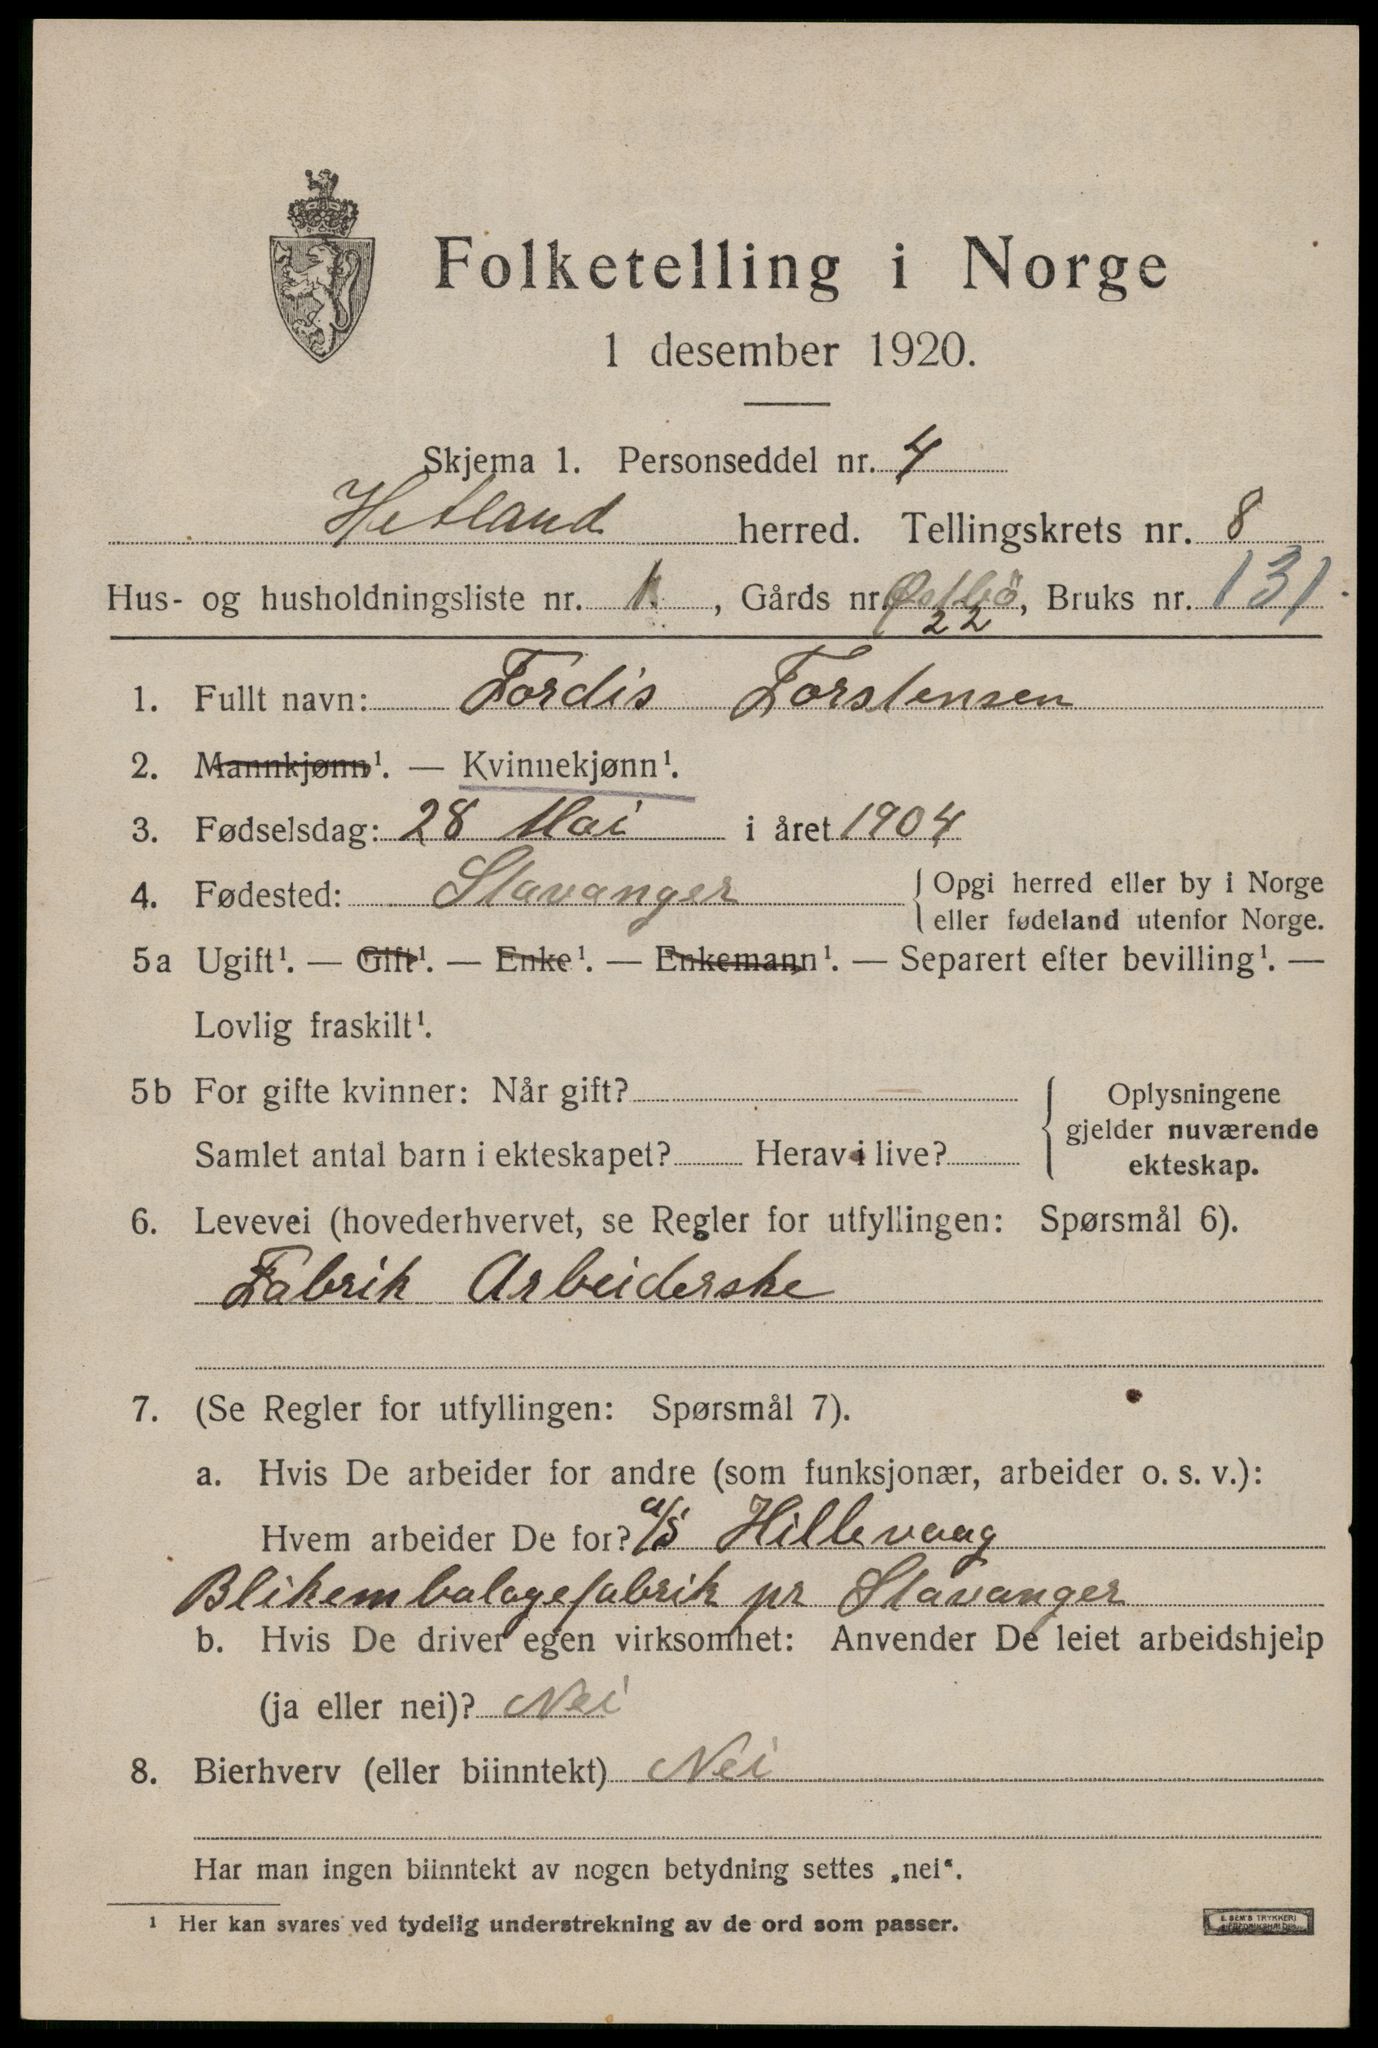 Folketelling i Norge
1 desember 1920.
Skjema 1. Personseddel nr. 4
Hetland herred. Tellingskrets nr. 8
Hus- og husholdningsliste nr. 1, Gårds nr. Østbö, Bruks nr. 131
22
1. Fullt navn: Tordis Torstensen
2. Mannkjønn¹. — Kvinnekjønn¹.
3. Fødselsdag: 28 Mai i året 1904
4. Fødested: Stavanger { Opgi herred eller by i Norge
eller fødeland utenfor Norge.
5a Ugift¹. — Gift¹. — Enke¹. — Enkemann¹. — Separert efter bevilling¹. —
Lovlig fraskilt¹.
5b For gifte kvinner: Når gift?
Samlet antal barn i ekteskapet? Herav i live?
{ Oplysningene
gjelder nuværende
ekteskap.
6. Levevei (hovederhvervet, se Regler for utfyllingen: Spørsmål 6).
Fabrik Arbeiderske
7. (Se Regler for utfyllingen: Spørsmål 7).
a. Hvis De arbeider for andre (som funksjonær, arbeider o. s. v.):
Hvem arbeider De for? a/s Hillevaag
Blikembalagefabrik pr Stavanger
b. Hvis De driver egen virksomhet: Anvender De leiet arbeidshjelp
(ja eller nei)? Nei
8. Bierhverv (eller biinntekt) Nei
Har man ingen biinntekt av nogen betydning settes „nei“.
¹ Her kan svares ved tydelig understrekning av de ord som passer.
E. SEM'S TRYKKERI
FREDRIKSHALD